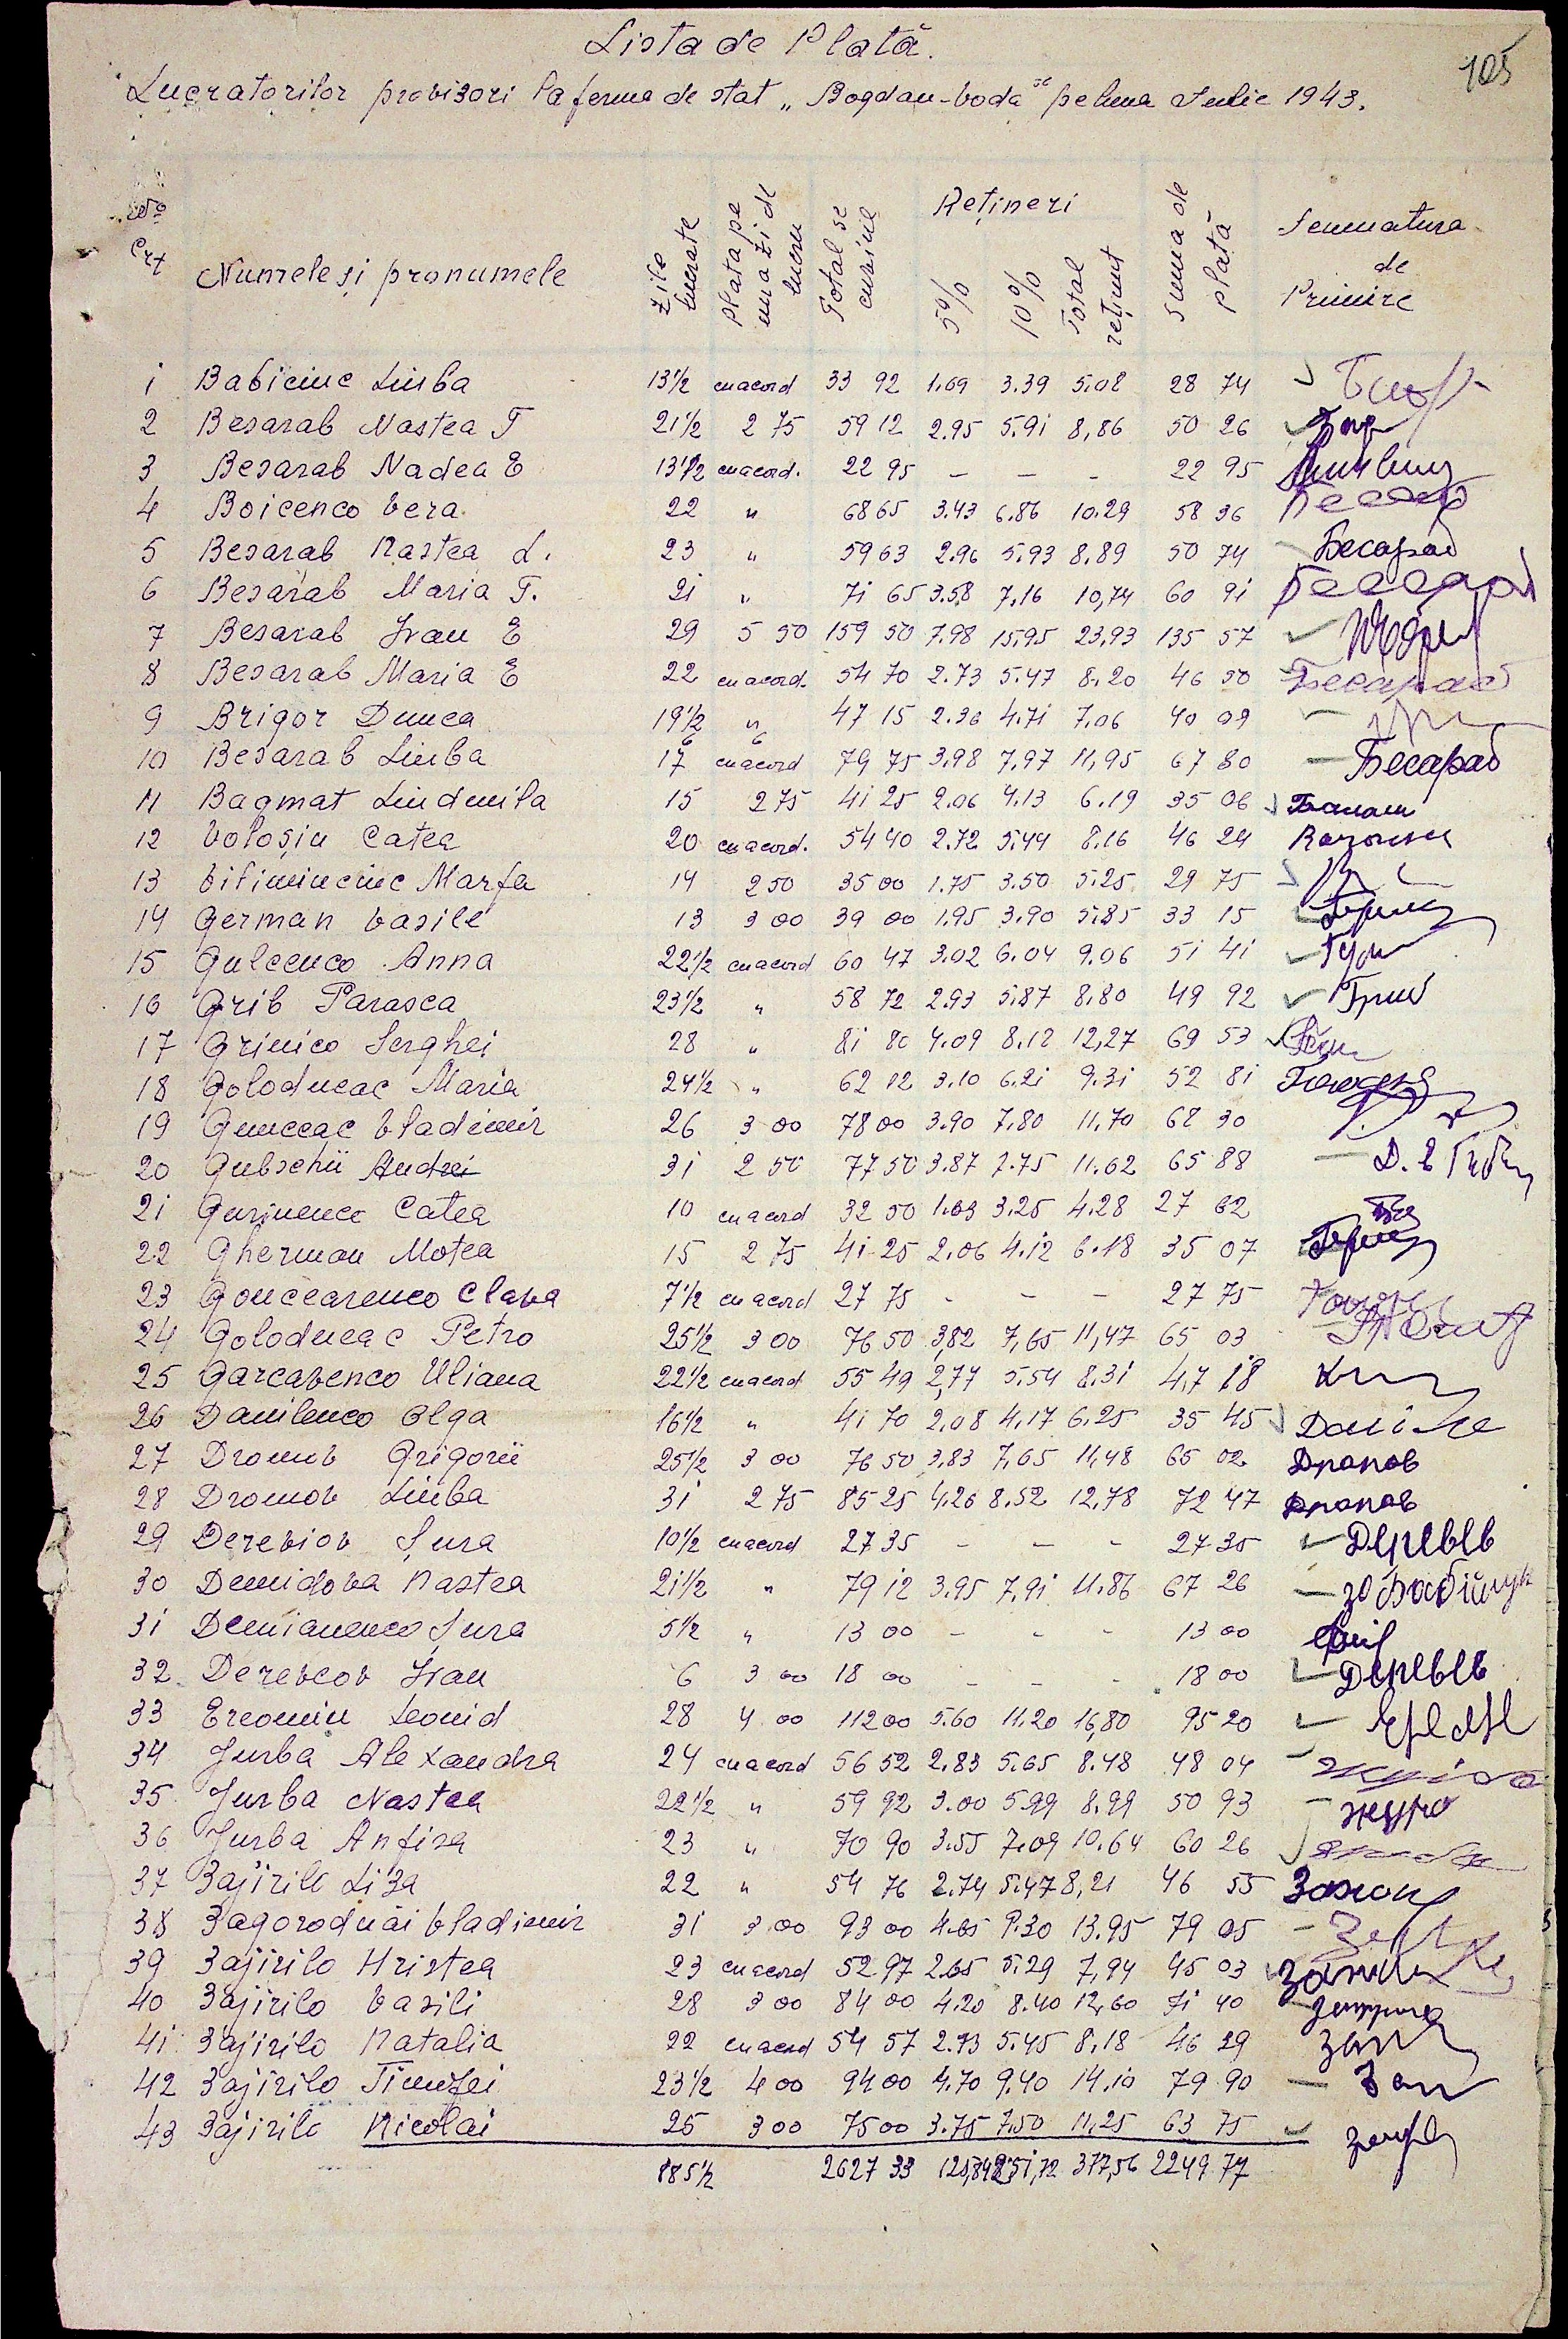 105
Lista de Plată.
Lucratorilor provizori la ferma de stat „Bogdan-Vodă" pe luna Iulie 1943.
No Crt Numele și pronumele Zile lucrate Plata pe una zi de lucru Total se cuvine Rețineri 5% 10% Total reținut Suma de plată Semnatura de Primire
1 Babiciuc Liuba 13½ cu acord 33 92 1.69 3.39 5.08 28 74
2 Besarab Nastea T 21½ 2 75 59 12 2.95 5.91 8,86 50 26
3 Besarab Nadea E 13½ cu acord. 22 95 – – – 22 95
4 Boicenco Vera 22 " 68 65 3.43 6.86 10.29 58 36
5 Besarab Nastea L. 23 " 59 63 2.96 5.93 8.89 50 74 Бесараб
6 Besarab Maria T. 21 " 71 65 3.58 7.16 10,74 60 91
7 Besarab Ivan E 29 5 50 159 50 7.98 15.95 23,93 135 57
8 Besarab Maria E 22 cu acord. 54 70 2.73 5.47 8.20 46 50 Бесараб
9 Brigor Dunea 19½ " 47 15 2.36 4.71 7.06 40 09
10 Besarab Liuba 17 cu acord 79 75 3,98 7,97 11,95 67 80 Бесараб
11 Bagmat Liudmila 15 2 75 41 25 2.06 4.13 6.19 35 06
12 Voloșin Catea 20 cu acord. 54 40 2.72 5.44 8.16 46 24
13 Marfa 14 2 50 35 00 1.75 3.50 5.25 29 75
14 German Vasile 13 3 00 39 00 1.95 3.90 5.85 33 15
15 Gulcenco Anna 22½ cu acord 60 47 3.02 6.04 9.06 51 41
16 Grib Parasca 23½ " 58 72 2.93 5.87 8.80 49 92 Гриб
17 Grinico Serghei 28 " 81 80 4.09 8.18 12,27 69 53
18 Goloducac Maria 24½ " 62 12 3.10 6.21 9.31 52 81
19 Vladimir 26 3 00 78 00 3.90 7.80 11.70 68 30
20 Gubschii Andrei 31 2 50 77 50 3.87 7.75 11.62 65 88
21 Catea 10 cu acord 32 50 1.63 3.25 4.28 27 62
22 Gherman Motea 15 2 75 41 25 2.06 4.12 6.18 35 07
23 Goncearenco Clava 7½ cu acord 27 75 - – – 27 75
24 Goloducac Petro 25½ 3 00 76 50 3,82 7,65 11,47 65 03
25 Garcavenco Uliana 22½ cu acord 55 49 2,77 5.54 8.31 47 18
26 Danilenco Olga 16½ " 41 70 2,08 4,17 6.25 35 45
27 Dromov Grigorii 25½ 3 00 76 50 3,83 7,65 11,48 65 02
28 Dromov Liuba 31 2 75 85 25 4.26 8.52 12,78 72 47
29 Dereviov Șura 10½ cu acord 27 35 – – - 27 35
30 Demidova Nastea 21½ " 79 12 3.95 7,91 11.86 67 26 за Бабійчук
31 Demianenco Șura 5½ " 13 00 – - - 13 00
32 Derevcov Ivan 6 3 00 18 00 – – - 18 00
33 Ereomin Leonid 28 4 00 112 00 5.60 11.20 16,80 95 20
34 Jurba Alexandra 24 cu acord 56 52 2.83 5.65 8.48 48 04
35 Jurba Nastea 22½ " 59 92 3.00 5.99 8.99 50 93
36 Jurba Anfisa 23 " 70 90 3.55 7.09 10.64 60 26
37 Zajirilo Liza 22 " 54 76 2.74 5.47 8,21 46 55
38 Zagorodnâi Vladimir 31 3 00 93 00 4.65 9.30 13.95 79 05
39 Zajirilo Hristea 23 cu acord 52 97 2.65 5.29 7,94 45 03
40 Zajirilo Vasili 28 3 00 84 00 4.20 8.40 12,60 71 40
41 Zajirilo Natalia 22 cu acord 54 57 2.73 5.45 8.18 46 29
42 Zajirilo Timofei 23½ 4 00 94 00 4.70 9,40 14.10 79 90
43 Zajirilo Nicolai 25 3 00 75 00 3.75 7.50 11,25 63 75
885½ 2627 33 251,72 377,56 2249 77